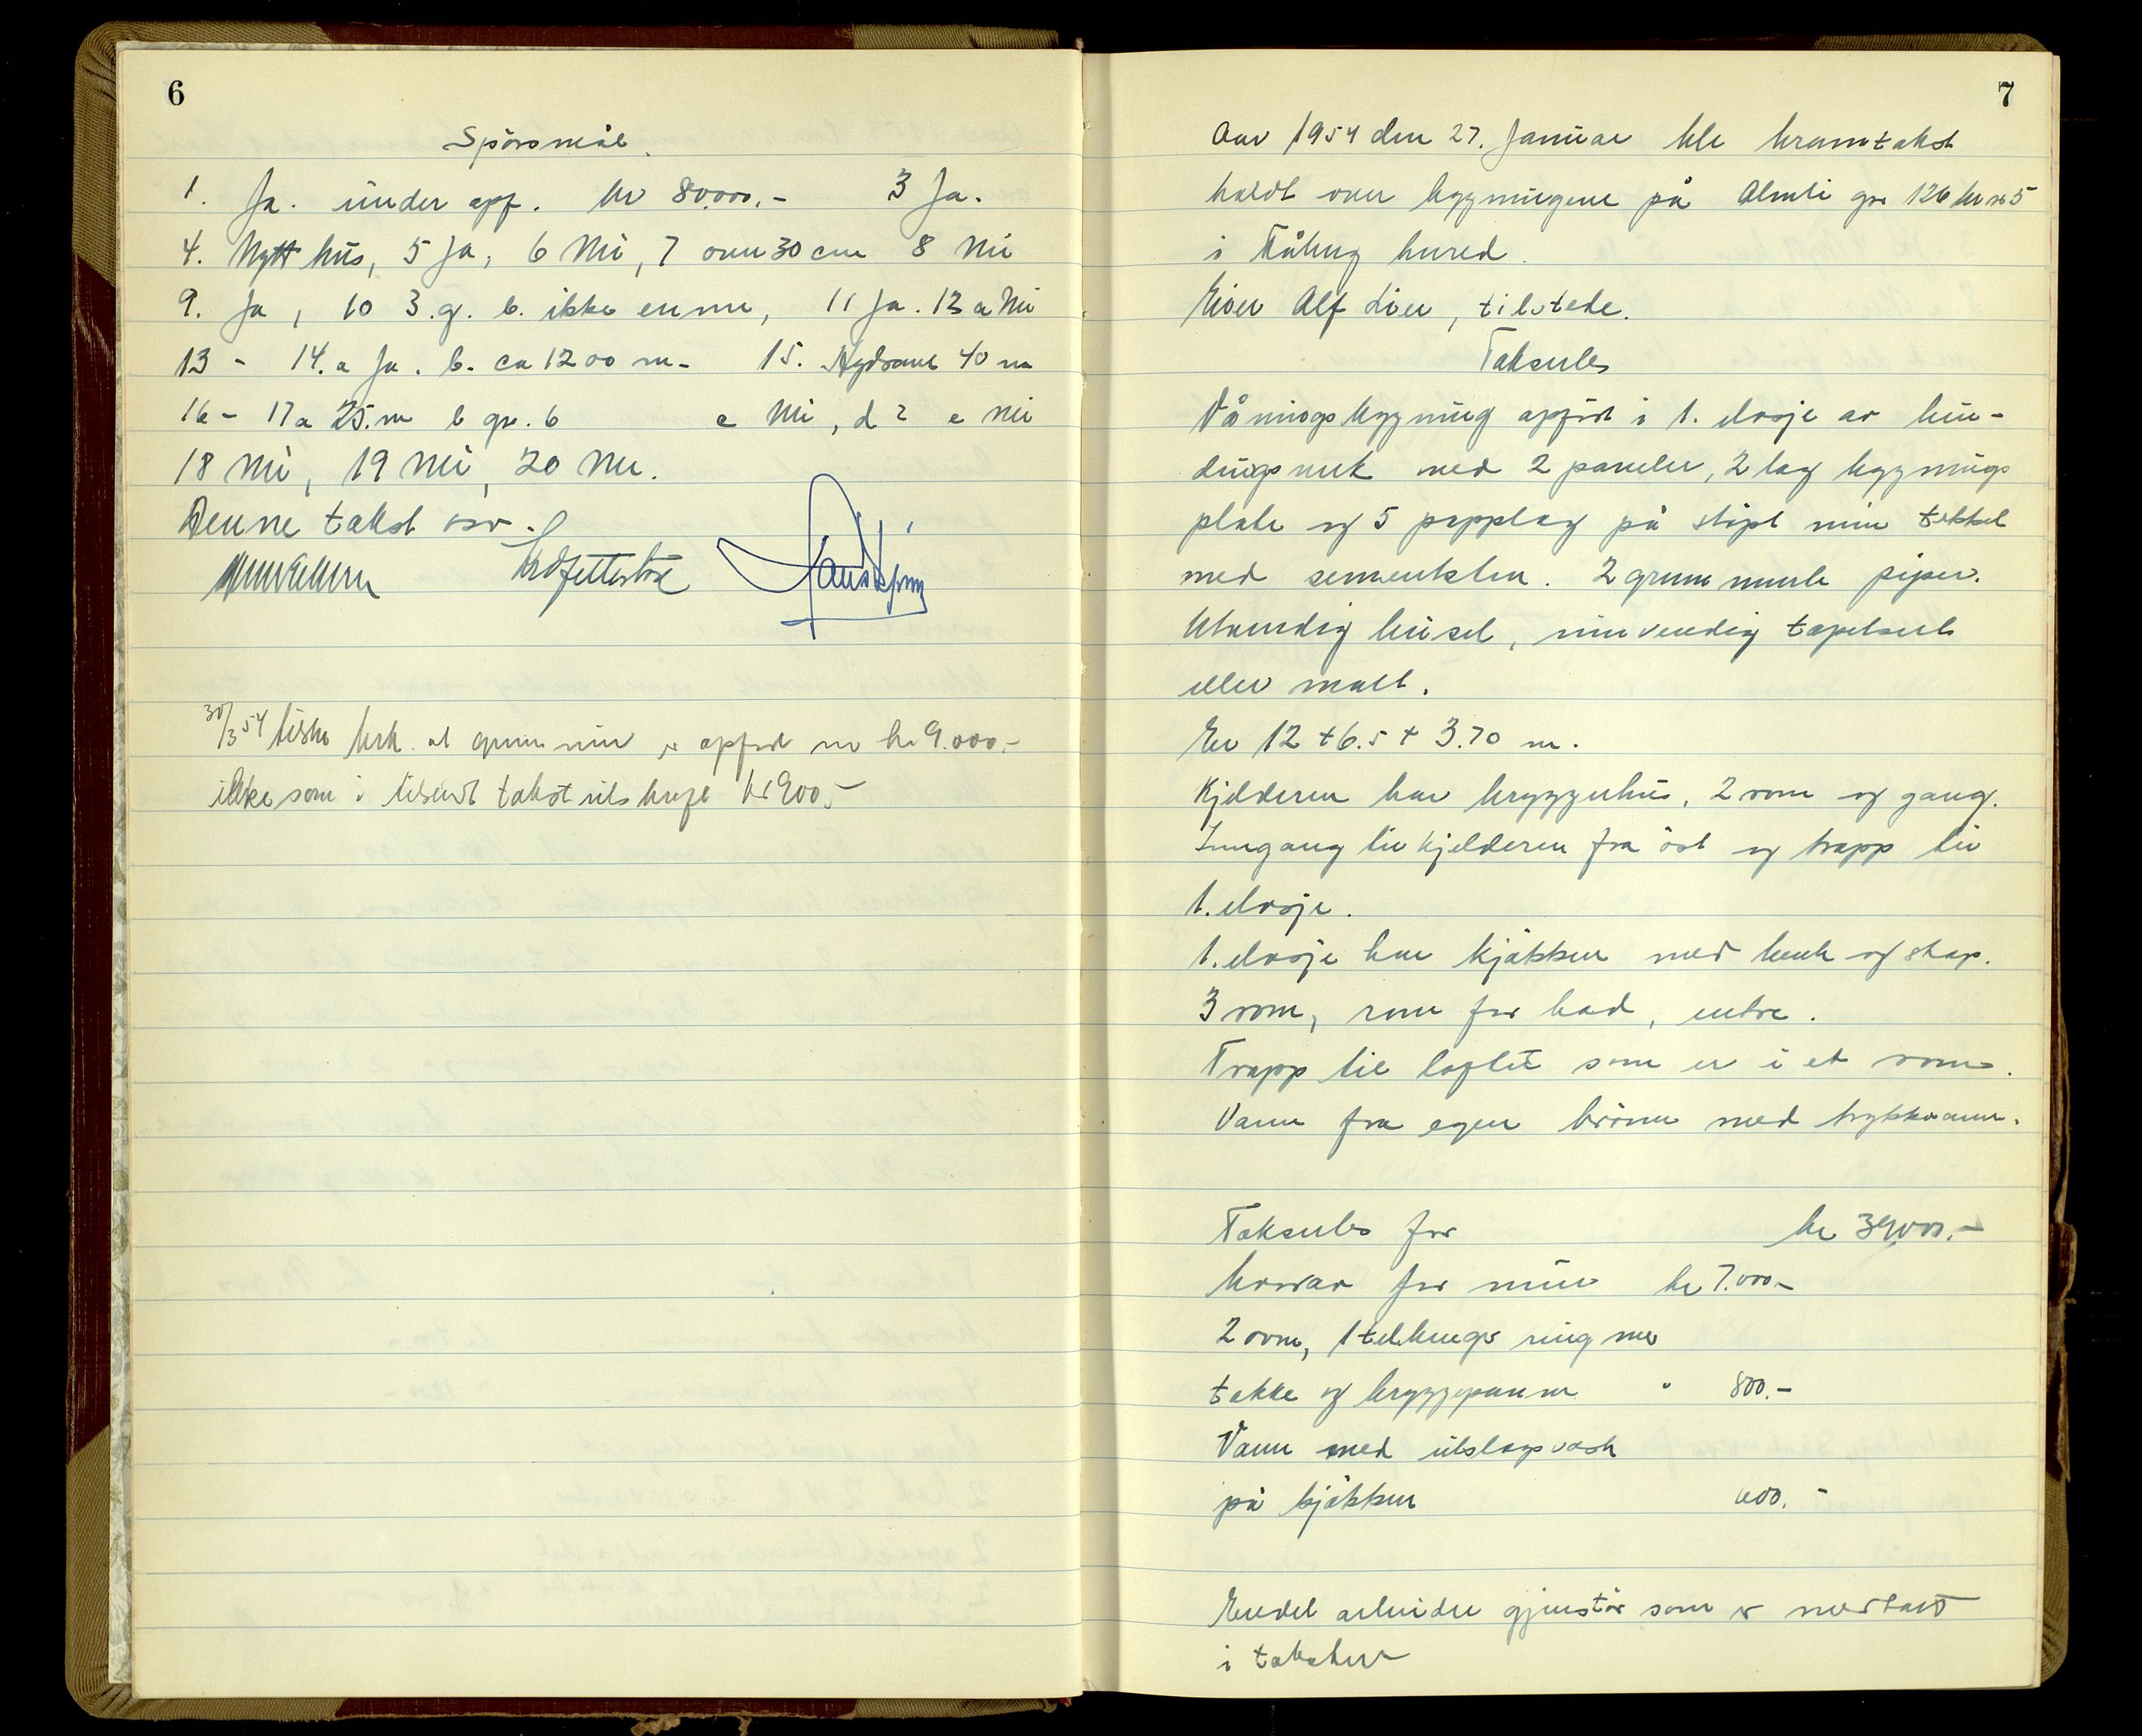 6
Spörsmål.
1. Ja. under opf. kr 80.000.- 3 Ja.
4. Nytt hus, 5 Ja, 6 Nei, 7 over 30 cm 8 Nei
9. Ja, 10 3.g. b. ikke ennu, 11 Ja. 12 a Nei
13 - 14. a Ja. b. ca 1200 m- 15. Hydrant 40 m
16 - 17 a 25. m b gr. 6 c Nei, d 2 e Nei
18 Nei, 19 Nei, 20 Nei.
Denne takst osv.
30/3 54 at grunnmur er opfört m kr 9.000.-
ikke som i tilsendt takst utskrift kr 900.-
7
Aar 1954 den 27. Januar ble branntakst
holdt over bygningene på Almli gr 126 br nr 5
i herred.
Eier Alf Lier, tilstede.
Takseres
Våningsbygning opfört i 1. etasje av bin-
dingsverk med 2 paneler, 2 lag bygnings
plate og 5 papplag på stöpt mur tekket
med sementsten. 2 grunnmurte piper.
Utvendig beiset, innvendig tapetsert
eller malt.
Er 12 + 6.5 + 3.70 m.
Kjelderen har bryggerhus, 2 rom og gang.
Inngang til kjelderen fra öst og trapp til
1. etasje.
1. etasje har kjökken med benk og skap.
3 rom, rom for bad, entre.
Trapp til loftet som er i et rom.
Vann fra egen brönn med trykkvann.
Takseres for kr 39000.-
hvorav for mur kr 7.000.-
2 ovne, 1 ring med
takke og bryggepanne " 800.-
Vann med utslagsvask
på kjökken 600.-
Endel arbeider gjenstår som er medtatt
i taksten